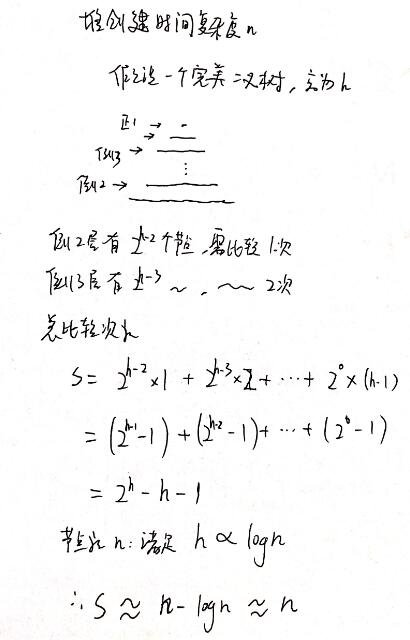 堆创建时间复杂度 n
假设一个完美二叉树，高为 h
正1 →
→
倒3 →
⋮
倒2 →
倒2层有 2^{h-2} 个节点，需比较 1次
倒3层有 2^{h-3} ~ , ~~ 2次
总比较次数
S = 2^{h-2}×1 + 2^{h-3}×2 + ⋯ + 2^0×(h-1)
= (2^{h-1}-1) + (2^{h-2}-1) + ⋯ + (2^0-1)
= 2^h - h - 1
节点数 n: 满足 h ∝ logn
∴ S ≈ n - logn ≈ n